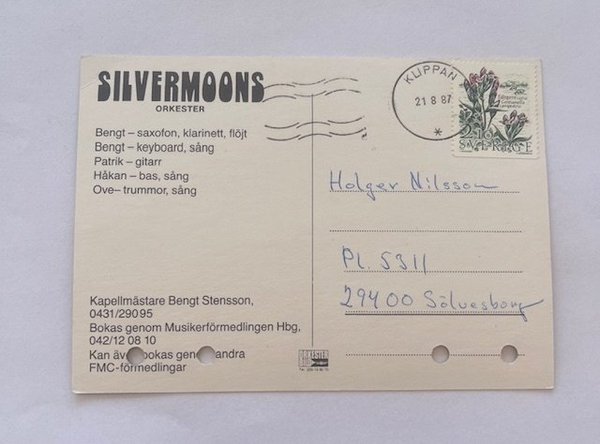 SILVERMOONS
ORKESTER
Bengt – saxofon, klarinett, flöjt
Bengt – keyboard, sång
Patrik – gitarr
Håkan – bas, sång
Ove– trummor, sång
Kapellmästare Bengt Stensson,
0431/290 95
Bokas genom Musikerförmedlingen Hbg,
042/12 08 10
Kan bokas andra
FMC-förmedlingar
KLIPPAN
21 8 87
*
2.10
SVERIGE
Holger Nilsson
Pl. 5311
294 00 Sölvesborg
ORKESTER